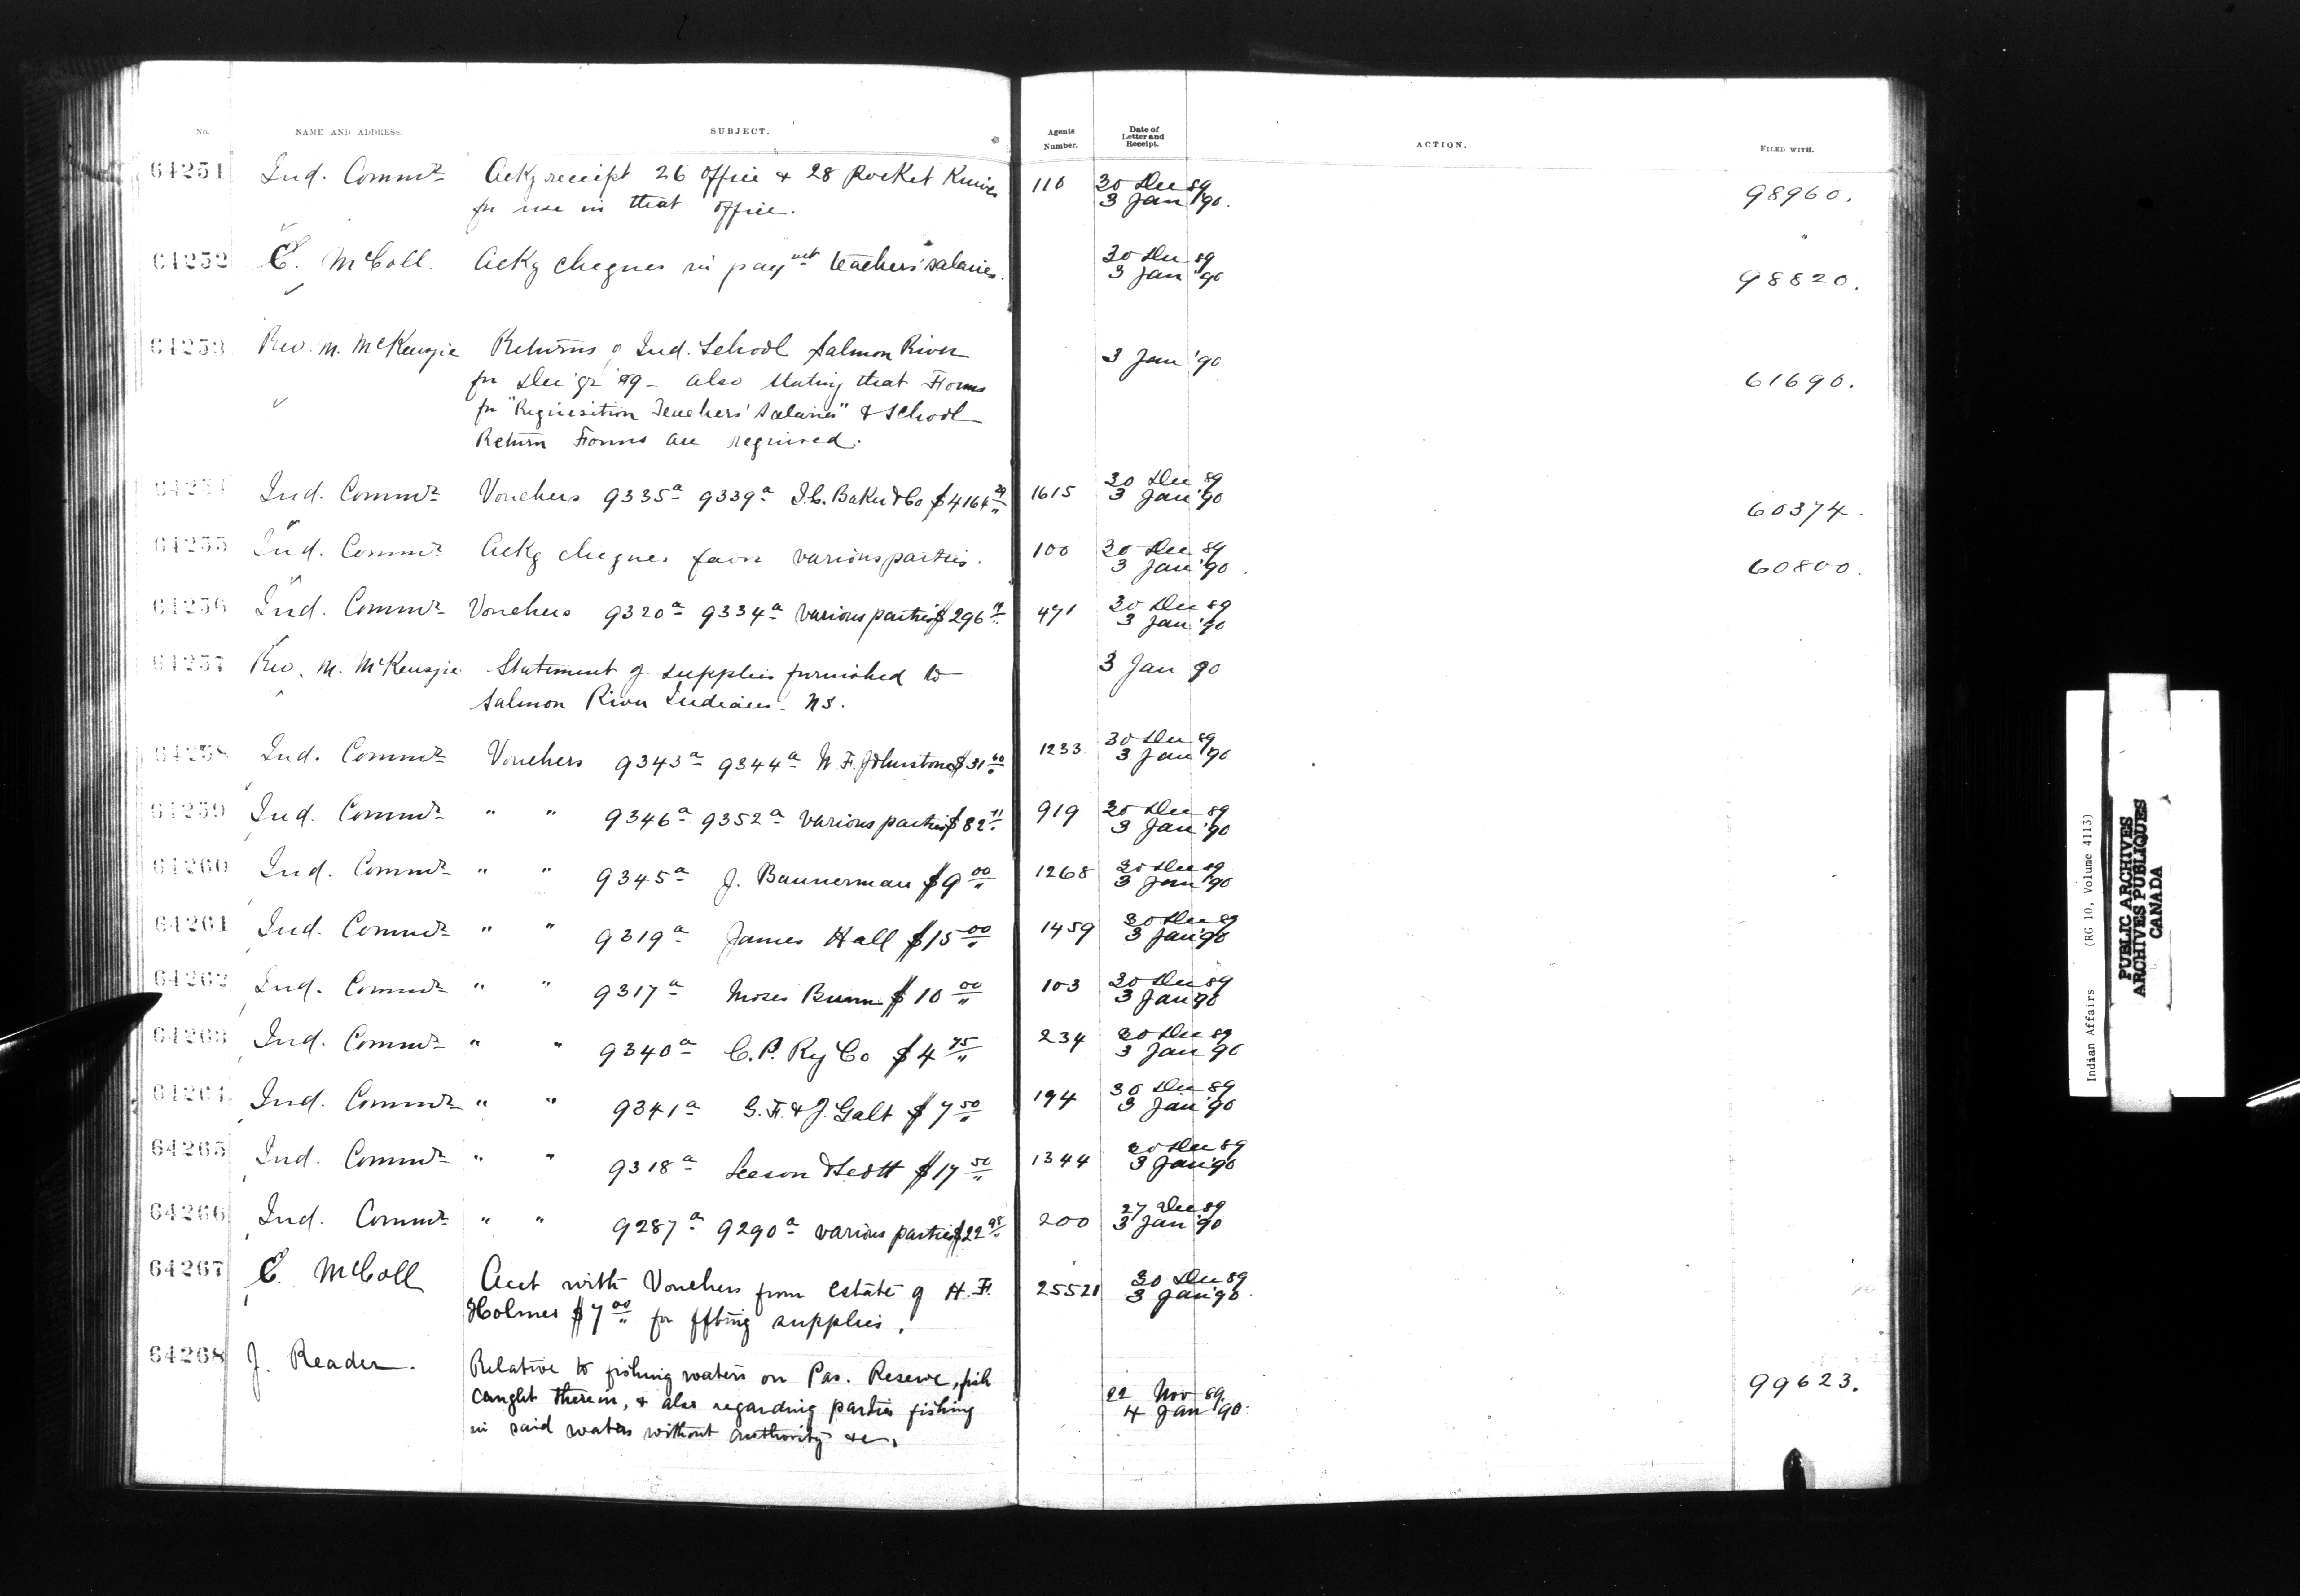 No. NAME AND ADDRESS. SUBJECT. Agents Number. Date of Letter and Receipt. ACTION. FILED WITH.
64251 Ind. Commr Ackg receipt 26 office & 28 Pocket Knives 110 30 Dec 89 98960.
for use in that office. 3 Jan '90.
64252 E. McColl. Ackg cheques in paymt teachers' salaries. 30 Dec 89 98820.
3 Jan '90
64253 Rev. M. McKenzie Returns of Ind. School Salmon River 3 Jan '90 61690.
for Dec qr '89 - also stating that Forms
for "Requisition Teachers' Salaries" & School
Return Forms are required.
64254 Ind. Commr Vouchers 9335a 9339a I.G. Baker & Co $4164 29 1615 30 Dec 89 60374.
3 Jan '90
64255 Ind. Commr Ackg cheques favor various parties. 100 30 Dec 89 60800.
3 Jan '90.
64256 Ind. Commr Vouchers 9320a 9334a various parties $296 491 30 Dec 89
3 Jan '90
64257 Rev. M. McKenzie Statement of supplies furnished to 3 Jan 90
Salmon River Indians. NS.
64258 Ind. Commr Vouchers 9343a 9344a W.F. Johnstone $31 60 1233. 30 Dec 89
3 Jan '90
64259 Ind. Commr " " 9346a 9352a various parties $82 71 919 30 Dec 89
3 Jan '90
64260 Ind. Commr " " 9345a J. Bannerman $9 00 1268 30 Dec 89
3 Jan '90
64261 Ind. Commr " " 9319a James Hall $15 00 1459 30 Dec 89
3 Jan '90
64262 Ind. Commr " " 9317a Moses Bunn $10 00 103 30 Dec 89
3 Jan '90
64263 Ind. Commr " " 9340a C.P. Ry Co $4 75 234 30 Dec 89
3 Jan '90
64264 Ind. Commr " " 9341a G.F. & J. Galt $7 50 194 30 Dec 89
3 Jan '90
64265 Ind. Commr " " 9318a Leeson & Scott $17 50 1344 30 Dec 89
3 Jan '90
64266 Ind. Commr " " 9287a 9290a various parties $22 98 200 27 Dec 89
3 Jan '90
64267 E. McColl Acct with Vouchers from estate of H.F. 25521 30 Dec 89
Holmes $7 00 for ffting supplies. 3 Jan '90.
64268 J. Reader. Relative to fishing waters on Pas. Reserve, fish 99623.
caught therein, & also regarding parties fishing 22 Nov 89.
in said waters without authority &c. 4 Jan '90.
Indian Affairs (RG 10, Volume 4113)
PUBLIC ARCHIVES
ARCHIVES PUBLIQUES
CANADA